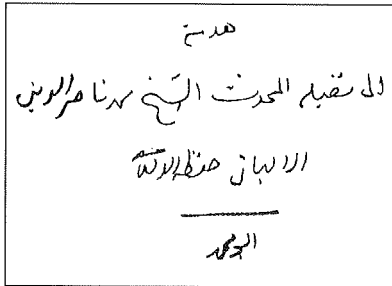 هدية
إلى فضيلة المحدث الشيخ محمد ناصر الدين
الألباني حفظه الله